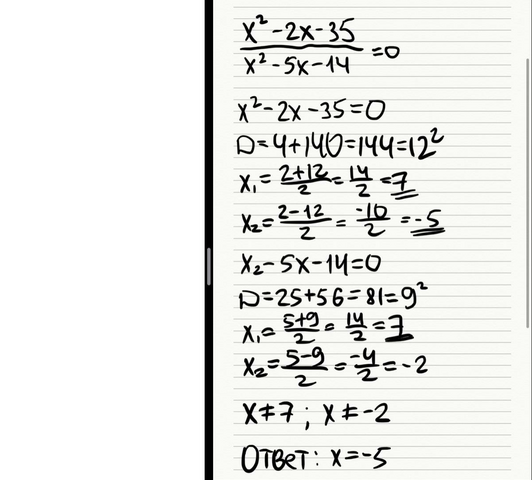 x²-2x-35
x²-5x-14 =0
x²-2x-35=0
D=4+140=144=12²
x₁=2+12/2=14/2=7
x₂=2-12/2=-10/2=-5
x₂-5x-14=0
D=25+56=81=9²
x₁=5+9/2=14/2=7
x₂=5-9/2=-4/2=-2
x≠7; x≠-2
Ответ: x=-5